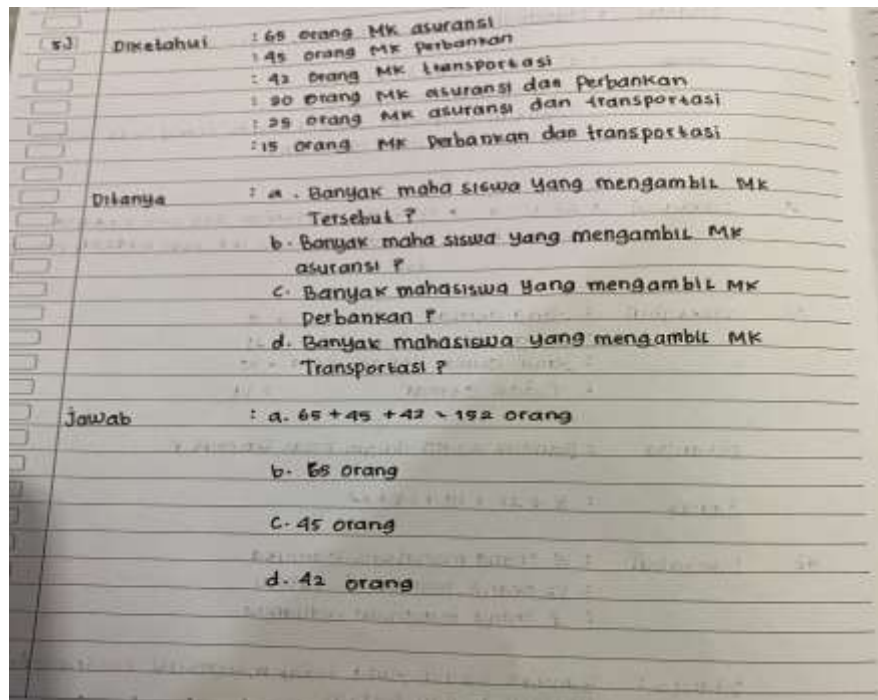 5.) Diketahui : 65 orang MK asuransi
: 45 orang MK perbankan
: 42 orang MK transportasi
: 20 orang MK asuransi dan Perbankan
: 25 orang MK asuransi dan transportasi
: 15 orang MK Perbankan dan transportasi
Ditanya : a. Banyak maha siswa yang mengambil MK
Tersebut ?
b. Banyak maha siswa yang mengambil MK
asuransi ?
c. Banyak mahasiswa yang mengambil MK
perbankan ?
d. Banyak mahasiswa yang mengambil MK
Transportasi ?
Jawab : a. 65 + 45 + 42 = 152 orang
b. 65 orang
c. 45 orang
d. 42 orang